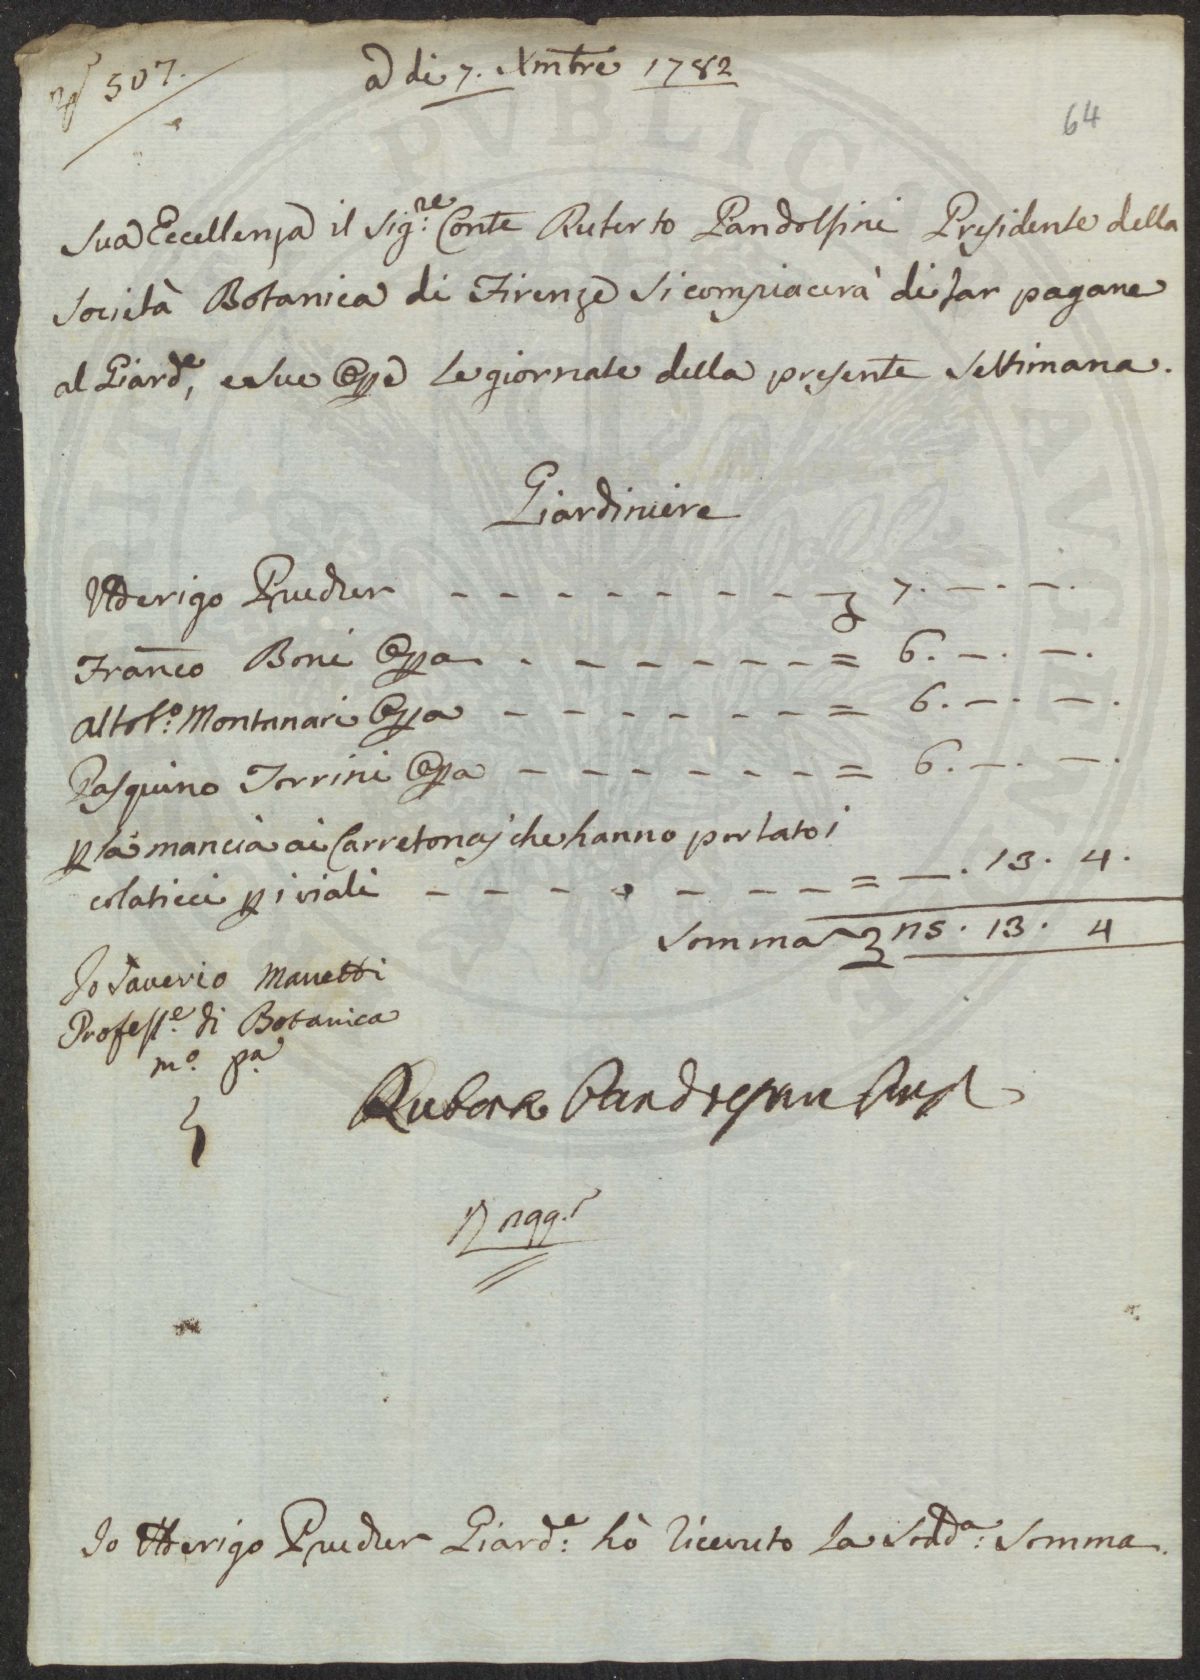 N.º 507.
A dì 7. Xmbre 1782
64
Sua Eccellenza il Sig:re Conte Ruberto Pandolfini Presidente della
Società Botanica di Firenze si compiacerà di far pagare
al Giard.e, e sue Opp.e le giornate della presente settimana.
Giardiniere
Udderigo Prucher 7. — . — .
Franco Boni Oppa = 6. — . — .
Altob.o Montanari Oppa = 6. — . — .
Pasquino Torrini Oppa = 6. — . — .
p la mancia ai Carretonaj che hanno portato i
colaticci p i viali = — . 13. 4.
Somma 25. 13. 4
Io Saverio Manetti
Profess.e di Botanica
m.o p.a
Ruberto Pandolfini Presid
Io Udderigo Prucher Giard.e: hò ricevuto la sodd.a: somma.